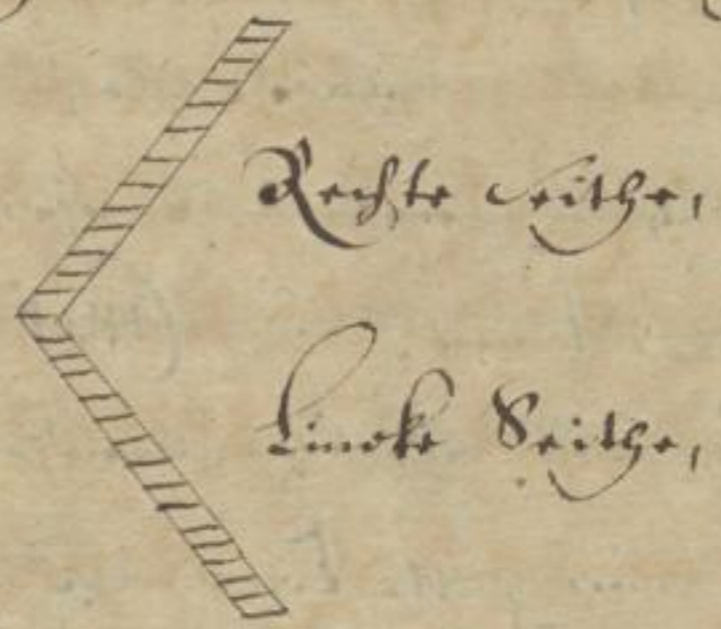 Rechte Seithe,
Lincke Seithe,